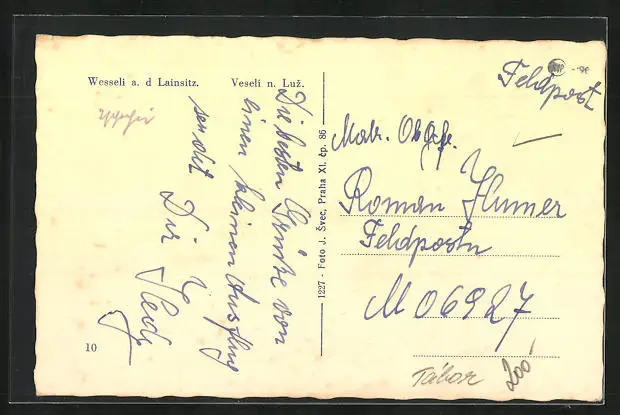 Wesseli a. d Lainsitz. Veselí n. Luž.
Die besten Grüße von
einen kleinen Ausflug
sendet Dir
10
1227 - Foto J. Švec, Praha XI. čp. 86
Feldpost
Matr. Ob. Gfr.
Roman Humer
Feldpostn
M 06927
Tábor
200